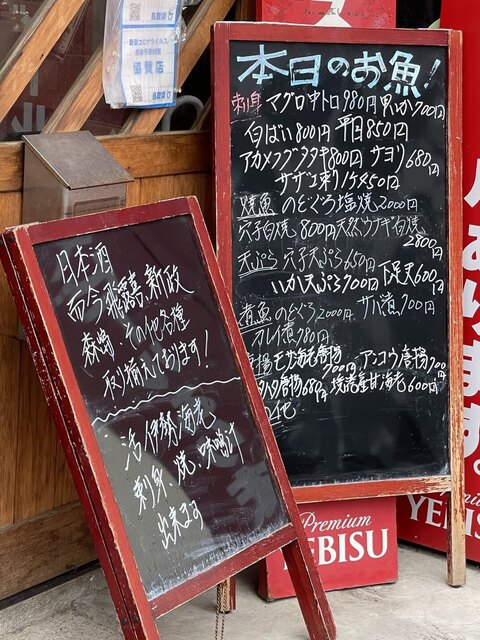 本日のお魚!
刺身 マグロ中トロ980円 黒いか700円
白ばい800円 平目850円
アカメフグタタキ800円 サヨリ680円
サザエ刺1ケ450円
焼魚 のどぐろ塩焼2000円
穴子白焼800円 天然ウナギ白焼
2800円
天ぷら 穴子天ぷら650円
いか天ぷら700円 下足天600円
煮魚 のどぐろ2000円 サバ煮700円
カレイ煮980円
モサ海老唐揚
700円 アンコウ唐揚700円
ハタハタ唐揚680円 境港産甘海老600円
他
日本酒
而今 飛露喜 新政
森嶋、その他各種
取り揃えております!
活伊勢海老
刺身、焼、味噌汁
出来ます
新型コロナウイルス
感染予防対策
協賛店
鳥取県
Premium
YEBISU
Premium
YEBISU
あります。